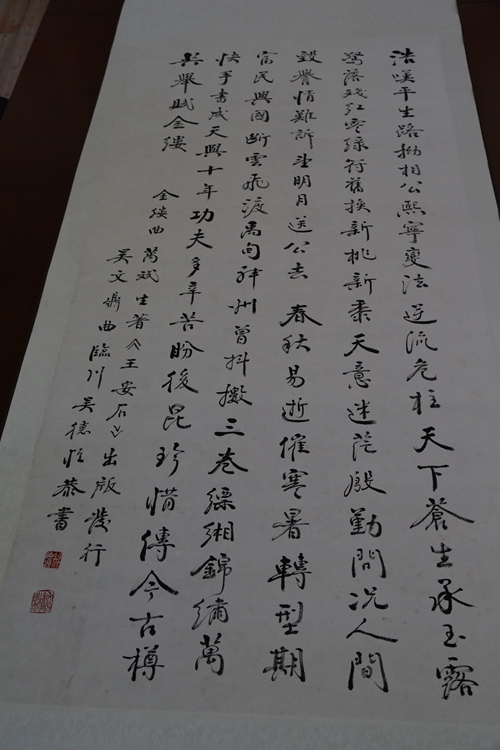 浩嘆平生路拗相公熙寧變法逆流危柱天下蒼生承玉露
驚落殘紅零綠行舊換新桃新黍天意迷茫殷勤問況人間
毀譽情難訴望明月送公去 春秋易逝催寒暑轉型期
富民興國斷雲飛渡禹甸神州曾抖擻三卷縹緗錦繡萬
快手書成天興十年功夫多辛苦盼後昆珍惜傳今古樽
共舉賦金縷
金縷曲
萬斌生著《王安石》出版發行
吳文鼎曲臨川
吳德恒恭書